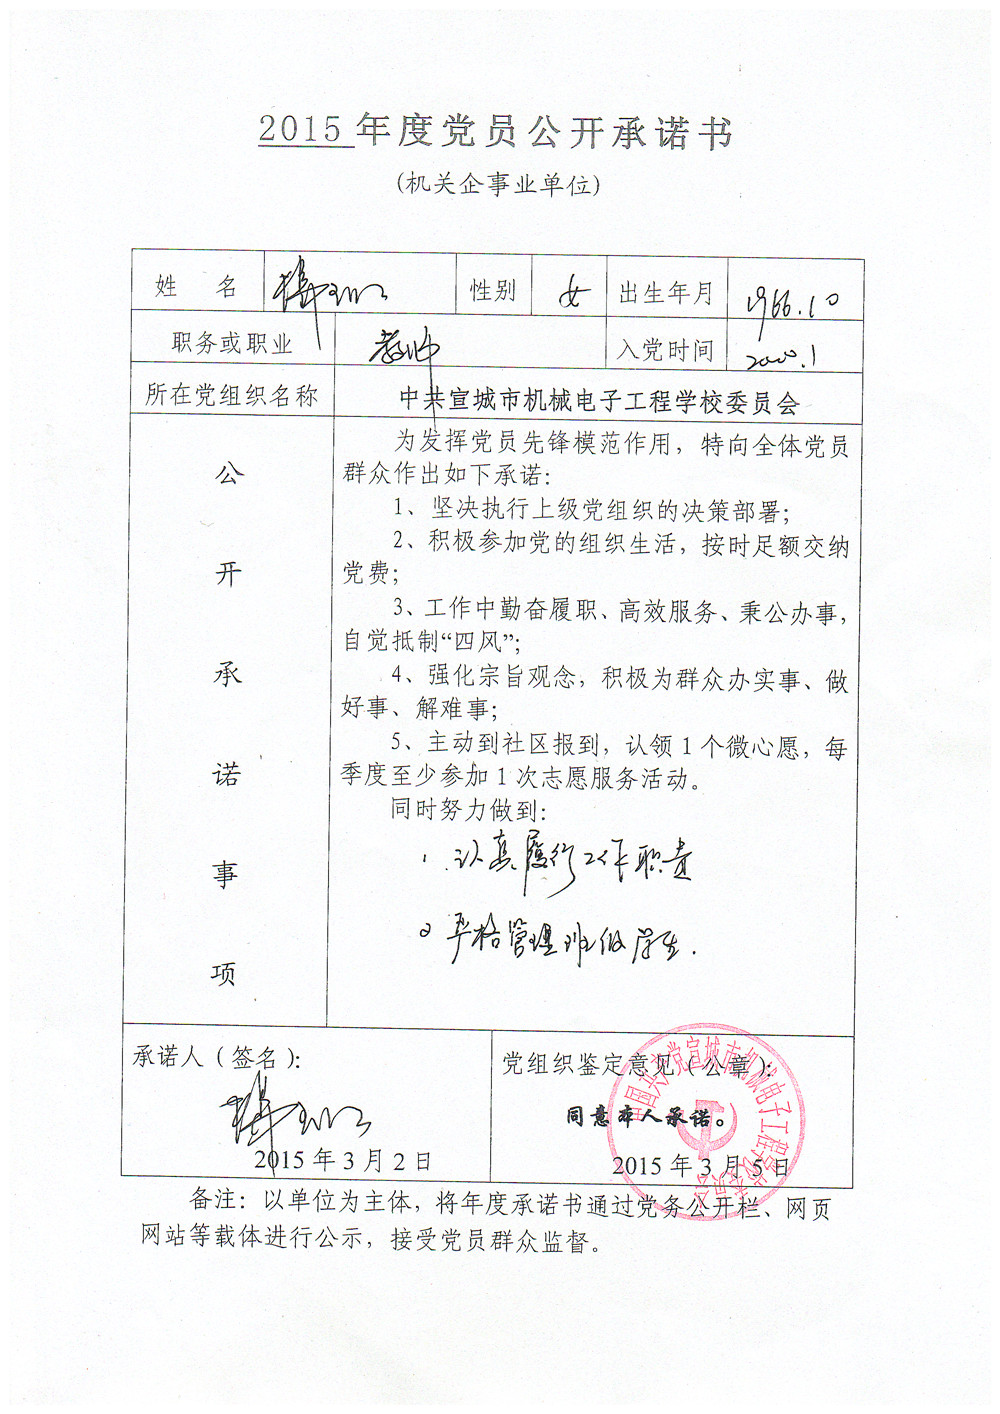 2015年度党员公开承诺书
(机关企事业单位)
姓 名 性别 女 出生年月 1966.10
职务或职业 教师 入党时间 2000.1
所在党组织名称 中共宣城市机械电子工程学校委员会
公开承诺事项
为发挥党员先锋模范作用，特向全体党员
群众作出如下承诺：
1、坚决执行上级党组织的决策部署；
2、积极参加党的组织生活，按时足额交纳
党费；
3、工作中勤奋履职、高效服务、秉公办事，
自觉抵制“四风”；
4、强化宗旨观念，积极为群众办实事、做
好事、解难事；
5、主动到社区报到，认领1个微心愿，每
季度至少参加1次志愿服务活动。
同时努力做到：
1.认真履行工作职责
2 严格管理班级学生.
承诺人（签名）：
2015年3月2日
党组织鉴定意见（公章）：
同意本人承诺。
2015年3月5日
中国共产党宣城市机械电子工程学校委员会
备注：以单位为主体，将年度承诺书通过党务公开栏、网页
网站等载体进行公示，接受党员群众监督。